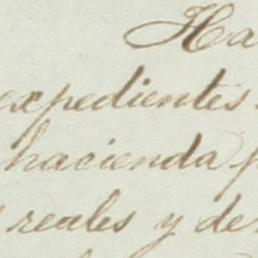 Ha
expedientes
hacienda p
reales y de